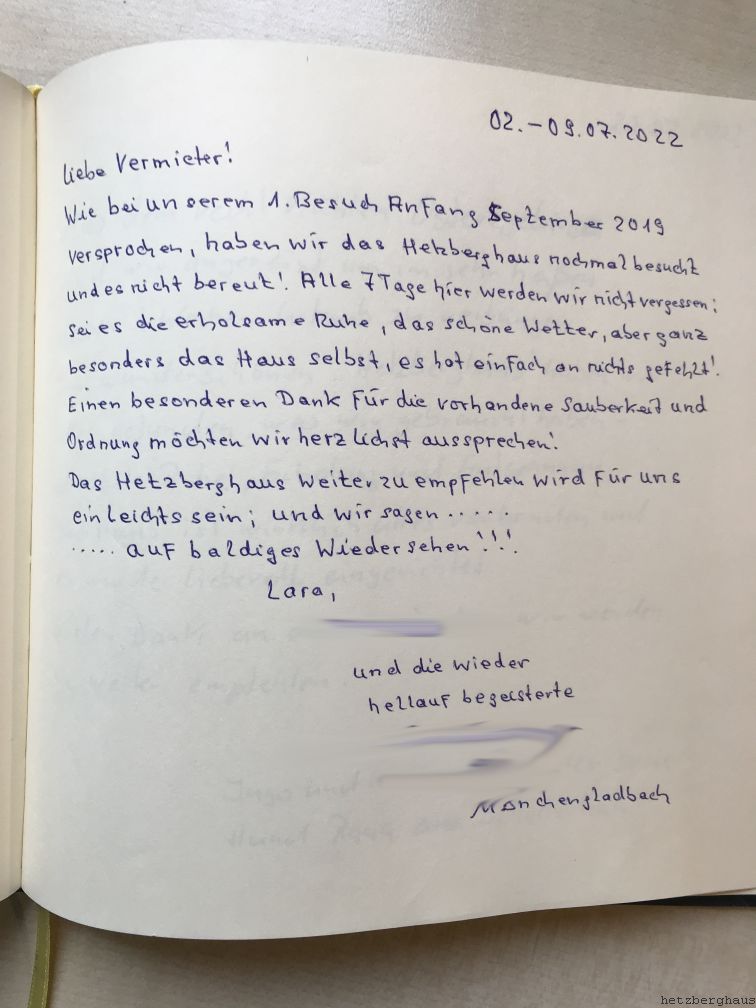 02.-09.07.2022
Liebe Vermieter!
Wie bei unserem 1. Besuch Anfang September 2019
versprochen, haben wir das Hetzberghaus nochmal besucht
und es nicht bereut! Alle 7 Tage hier werden wir nicht vergessen;
sei es die erholsame Ruhe, das schöne Wetter, aber ganz
besonders das Haus selbst, es hat einfach an nichts gefehlt!
Einen besonderen Dank für die vorhandene Sauberkeit und
Ordnung möchten wir herzlichst aussprechen!
Das Hetzberghaus weiterzuempfehlen wird für uns
ein leichts sein; und wir sagen ......
..... auf baldiges Wiedersehen!!!
Lara,
und die wieder
hellauf begeisterte
Mönchengladbach
hetzberghaus